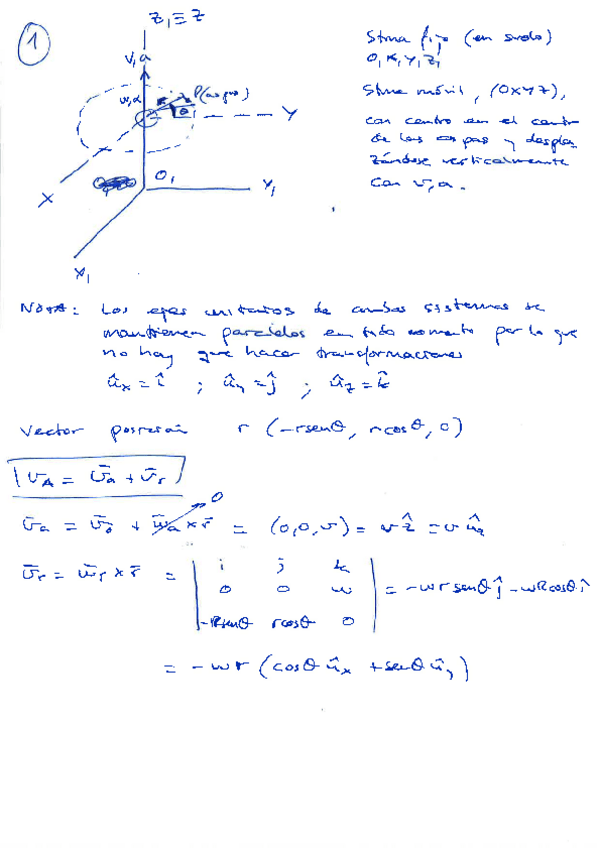 1
Z₁ ≡ Z
v, a
w, α
P(aspas)
θ
Y
O₁
Y₁
X
X₁
Stma fijo (en suelo)
O₁X₁Y₁Z₁
Stma móvil, (OXYZ),
con centro en el centro
de las aspas y despla
zándose verticalmente
con v, a.
NOTA: Los ejes unitarios de ambos sistemas se
mantienen paralelos en todo momento por lo que
no hay que hacer transformaciones
û_x = î ; û_y = ĵ ; û_z = k̂
Vector posición r (-rsenθ, rcosθ, 0)
v̄_A = v̄_a + v̄_r
v̄_a = v̄_o + w̄_a × r̄ 0 = (0,0,v) = v ẑ = v û_z
v̄_r = w̄_r × r̄ = | i j k
0 0 w
-Rsenθ rcosθ 0 | = -wr senθ ĵ - wR cosθ î
= -wr (cosθ û_x + senθ û_y)